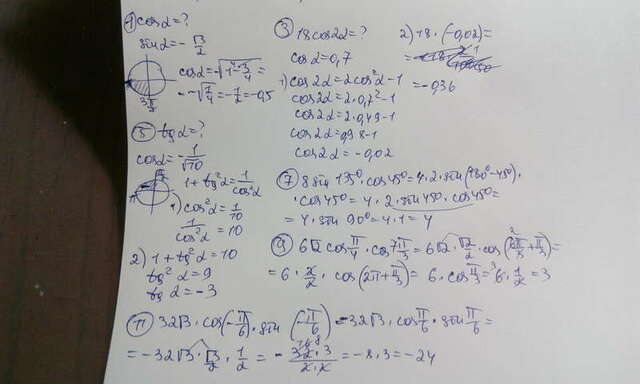 ① cos α = ?
sin α = -√3/2
cos α = -√(1² - 3/4) =
= -√(1/4) = -1/2 = -0,5
3π/2
⑤ tg α = ?
cos α = -1/√10
1 + tg²α = 1/cos²α
1) cos²α = 1/10
1/cos²α = 10
2) 1 + tg²α = 10
tg²α = 9
tg α = -3
③ 18cos2α = ?
cos α = 0,7
1) cos2α = 2cos²α - 1
cos2α = 2·0,7² - 1
cos2α = 2·0,49 - 1
cos2α = 0,98 - 1
cos2α = -0,02
2) 18·(-0,02) =
= -0,36
⑦ 8 sin 135° · cos 45° = 4·2·sin(180° - 45°)·
· cos 45° = 4·2·sin 45° · cos 45° =
= 4·sin 90° = 4·1 = 4
⑨ 6√2 cos π/4 · cos 7π/3 = 6√2 · √2/2 · cos(6π/3 + π/3) =
= 6 · 2/2 · cos(2π + π/3) = 6·cos π/3 = 6·1/2 = 3
⑪ 32√3 · cos(-π/6) · sin(-π/6) = -32√3 · cos π/6 · sin π/6 =
= -32√3 · √3/2 · 1/2 = -32·3/2·2 = -8·3 = -24